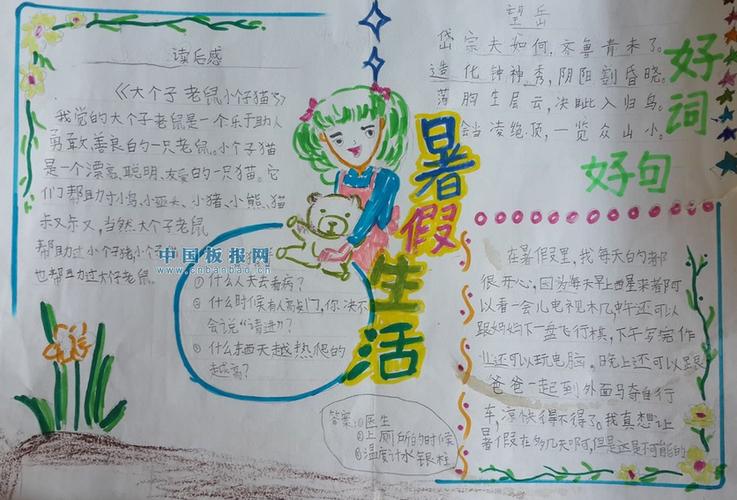 读后感
《大个子老鼠小个子猫》
我觉的大个子老鼠是一个乐于助人
勇敢、善良白的一只老鼠。小个子猫
是一个漂亮、聪明、友爱的一只猫。它
们帮助寸小鸟、小丫头、小猪、小熊、猫
叔叉、当然大个子老鼠
帮助过小个子猪小个子
也帮助过大仔老鼠
中国板报网
www.cnbanbao.cn
①什么人天天去看病?
②什么时候有人高攵门,你决不
会说“请进”?
③什么东西天越热爬的
越高?
答案:①医生
②上厕所的时候
③温度计水银柱
暑假生活
望岳
岱宗夫如何,齐鲁青未了。
造化钟神秀,阴阳割昏晓。
荡胸生层云,决眦入归鸟。
会当凌绝顶,一览众山小。
好词
好句
在暑假里,我每天白的都
很开心,因为每天早上
以看一会儿电视
跟妈妈下一盘飞行棋,下午写完作
业还可以玩电脑。晚上还可以跟
爸爸一起到外面骑自行
车,凉快得不得了。我真想让
暑假在多几天啊,但是这是不可能的